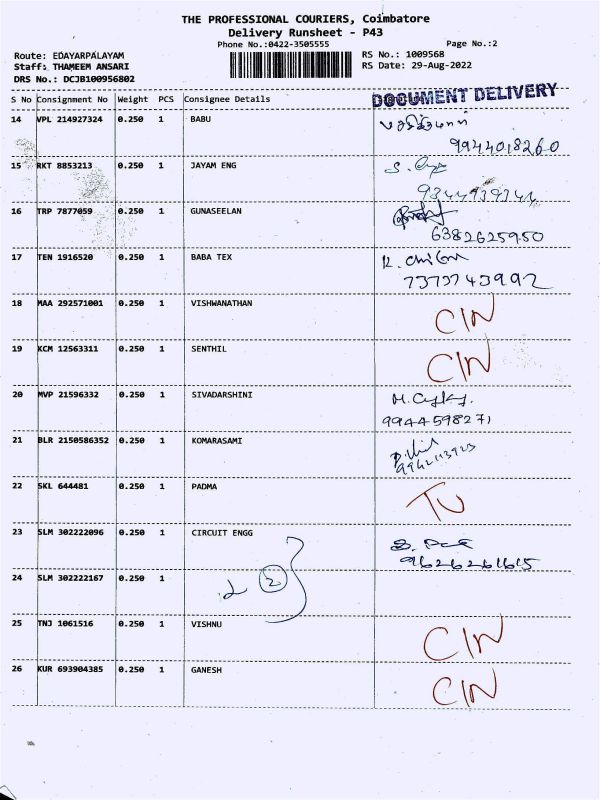 THE PROFESSIONAL COURIERS, Coimbatore
Delivery Runsheet - P43
Phone No.:0422-3505555
Page No.:2
Route: EDAYARPALAYAM
RS No.: 1009568
Staff: THAMEEM ANSARI
RS Date: 29-Aug-2022
DRS No.: DCJB100956802
DOCUMENT DELIVERY
S No Consignment No Weight PCS Consignee Details
14 VPL 214927324 0.250 1 BABU
9944018260
15 RKT 8853213 0.250 1 JAYAM ENG
16 TRP 7877059 0.250 1 GUNASEELAN
6382625950
17 TEN 1916520 0.250 1 BABA TEX
7373743992
18 MAA 292571001 0.250 1 VISHWANATHAN CIN
19 KCM 12563311 0.250 1 SENTHIL CIN
20 MVP 21596332 0.250 1 SIVADARSHINI
9944598271
21 BLR 2150586352 0.250 1 KOMARASAMI
22 SKL 644481 0.250 1 PADMA
23 SLM 302222096 0.250 1 CIRCUIT ENGG
9626261615
24 SLM 302222167 0.250 1 2
25 TNJ 1061516 0.250 1 VISHNU CIN
26 KUR 693904385 0.250 1 GANESH CIN